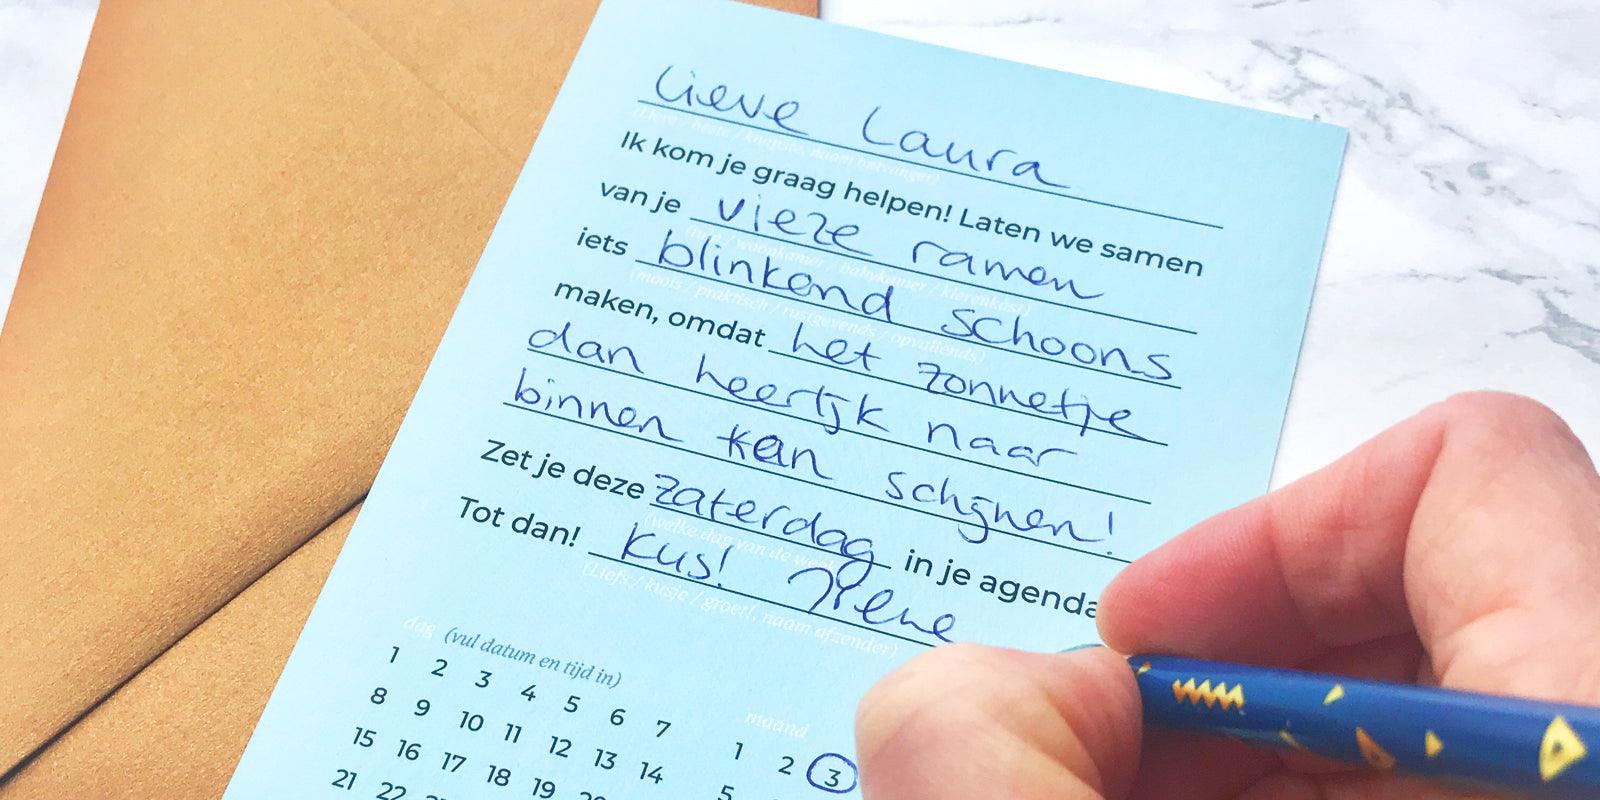 Lieve Laura
Ik kom je graag helpen! Laten we samen
van je vieze ramen
iets blinkend schoons
(moois / praktisch / rustgevends / opvallends)
maken, omdat het zonnetje
dan heerlijk naar
binnen kan schijnen!
Zet je deze zaterdag in je agenda
(welke dag van de week)
Tot dan! Kus! Irene
(Liefs / kusje / groet!, naam afzender)
dag (vul datum en tijd in)
maand
1 2 3 4 5 6 7
8 9 10 11 12 13 14
15 16 17 18 19
21 22
1 2 3
5